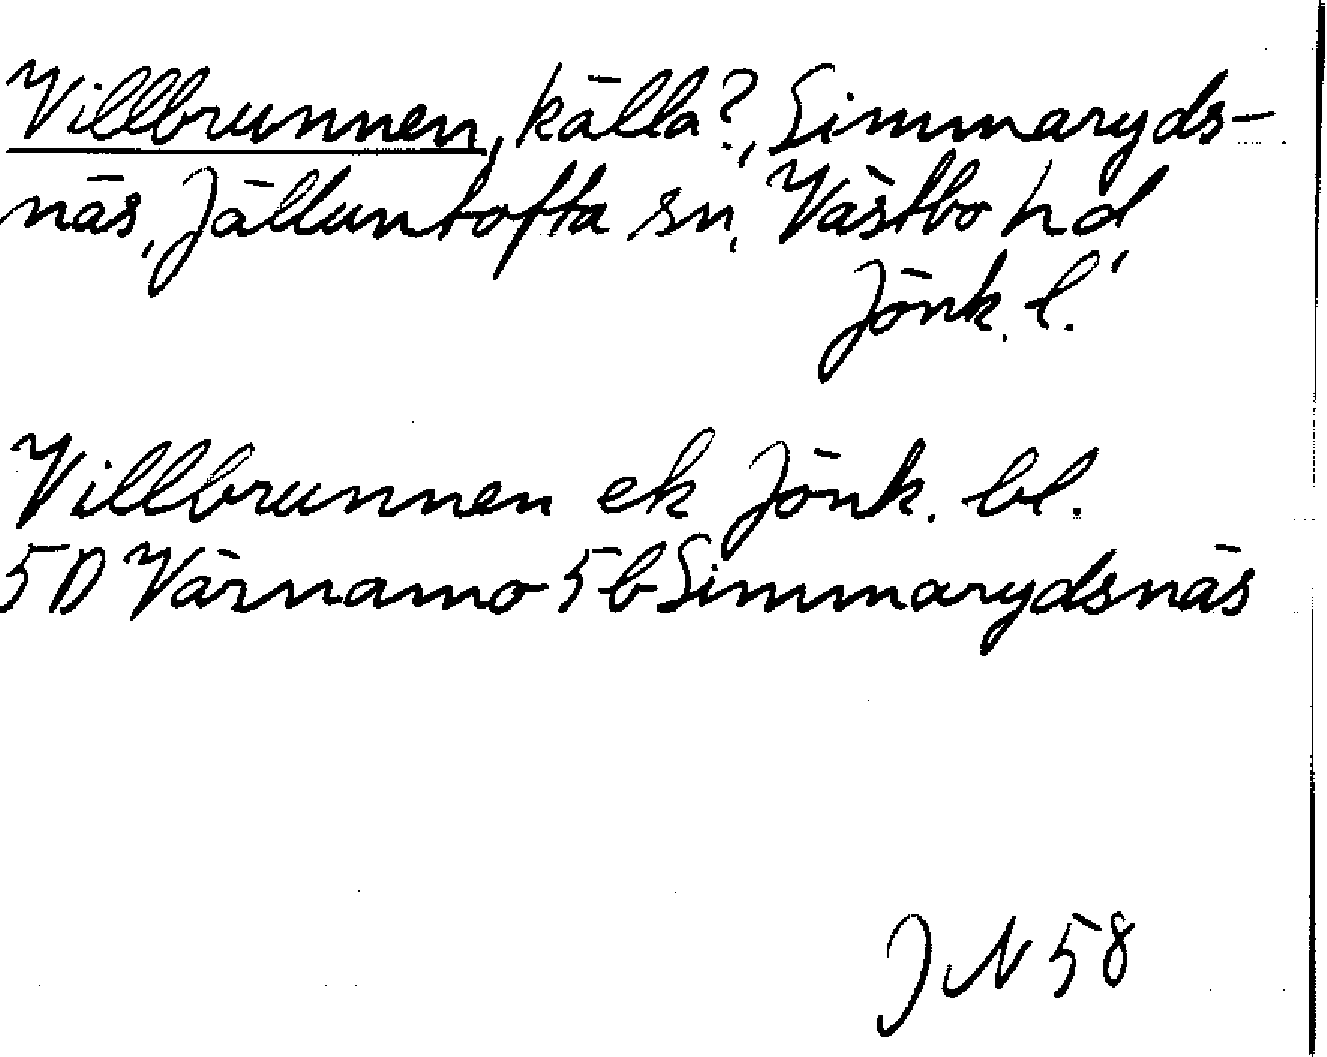 Villbrunnen, källa?, Simmaryds-
näs, Jälluntofta sn, Västbo hd,
Jönk. l.
Villbrunnen ek Jönk. bl.
5D Värnamo 5b Simmarydsnäs
JN 58